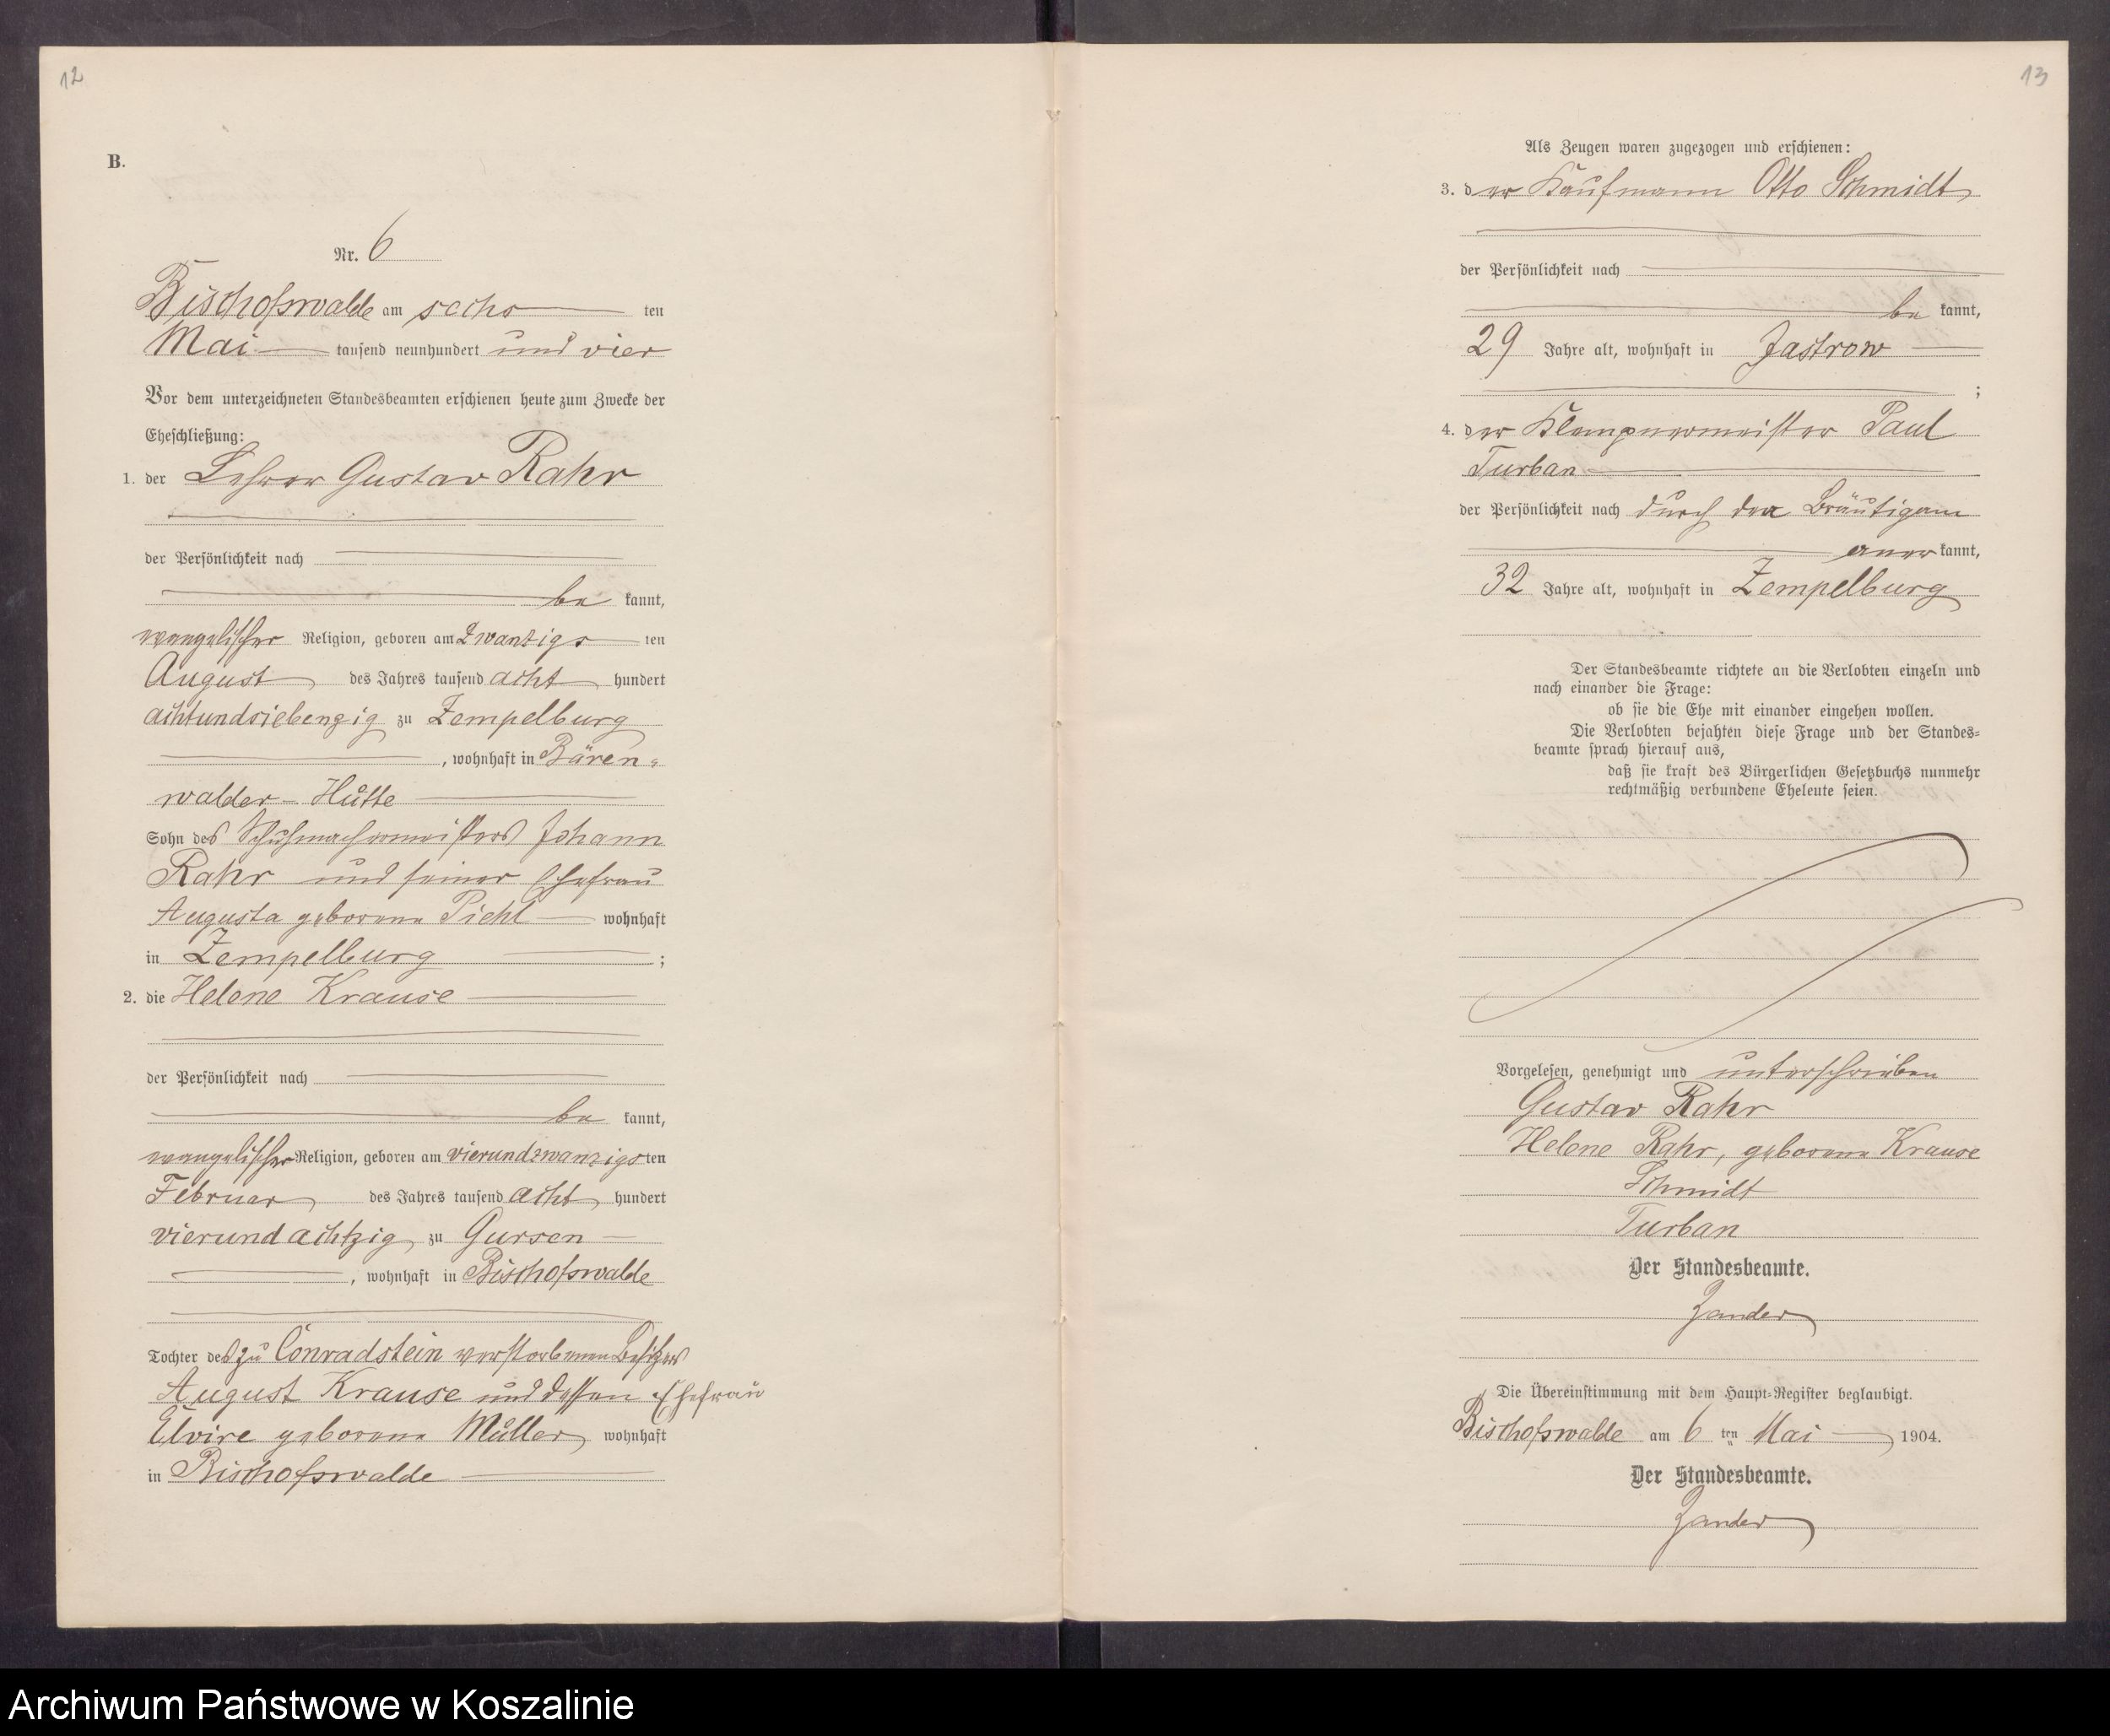 12
B.
Nr. 6
Bischofswalde am sechs ten
Mai tausend neunhundert und vier
Vor dem unterzeichneten Standesbeamten erschienen heute zum Zwecke der
Eheschließung:
1. der Lehrer Gustav Rahr
der Persönlichkeit nach
be kannt,
evangelischer Religion, geboren am zwanzigs ten
August des Jahres tausend acht hundert
achtundsiebenzig zu Zempelburg
, wohnhaft in Bären-
walder-Hütte
Sohn des Schuhmachermeisters Johann
Rahr und seiner Ehefrau
Augusta geborene Piehl wohnhaft
in Zempelburg ;
2. die Helene Krause
der Persönlichkeit nach
be kannt,
evangelischer Religion, geboren am vierundzwanzigsten
Februar des Jahres tausend acht hundert
vierundachtzig zu Gursen
, wohnhaft in Bischofswalde
Tochter des zu Conradstein verstorbenen Besitzers
August Krause und dessen Ehefrau
Elvire geborene Müller wohnhaft
in Bischofswalde
13
Als Zeugen waren zugezogen und erschienen:
3. der Kaufmann Otto Schmidt
der Persönlichkeit nach
be kannt,
29 Jahre alt, wohnhaft in Jastrow
;
4. der Klempnermeister Paul
Turban
der Persönlichkeit nach durch den Bräutigam
aner kannt,
32 Jahre alt, wohnhaft in Zempelburg
Der Standesbeamte richtete an die Verlobten einzeln und
nach einander die Frage:
ob sie die Ehe mit einander eingehen wollen.
Die Verlobten bejahten diese Frage und der Standes-
beamte sprach hierauf aus,
daß sie kraft des Bürgerlichen Gesetzbuchs nunmehr
rechtmäßig verbundene Eheleute seien.
Vorgelesen, genehmigt und unterschrieben
Gustav Rahr
Helene Rahr, geborene Krause
Schmidt
Turban
Der Standesbeamte.
Zander
Die Übereinstimmung mit dem Haupt-Register beglaubigt.
Bischofswalde am 6 ten Mai 1904.
Der Standesbeamte.
Zander
Archiwum Państwowe w Koszalinie